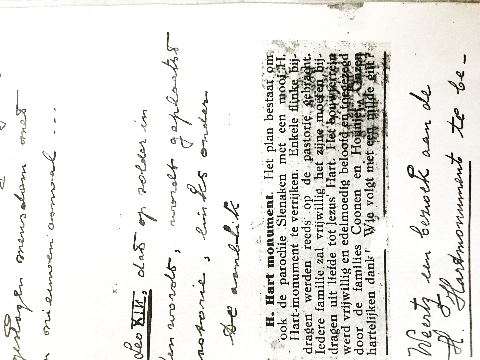 gslagen menschen met
nieuwen aanval ...
Leo XIII, dat op zolder in
en wordt, wordt geplaatst
pastorie, links onder
De aanblik
H. Hart monument Het plan bestaat om
ook de parochie Slenaken met een mooi H.
Hart-monument te verrijken. Enkele flinke bij-
dragen werden reeds op de pastorie gebracht.
Iedere familie zal vrijwillig het zijne moeten bij-
dragen uit liefde tot Jezus' Hart. Het bouwterrein
werd vrijwillig en edelmoedig beloofd en toegezegd
door de families Coonen en Houbiers. Onzen
hartelijken dank! Wie volgt met een milde gift?
Weertz een bezoek aan de
H. Hartmonument te be-